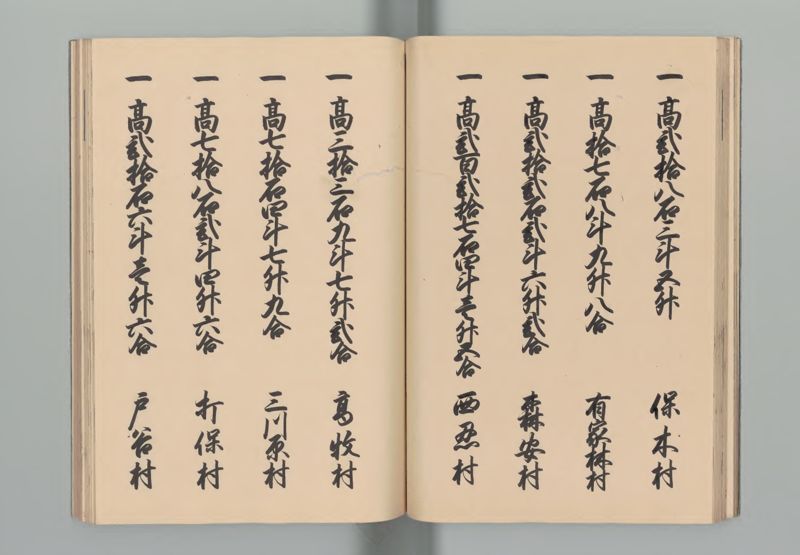 一 高弐拾八石三斗五升 保木村
一 高拾七石八斗九升八合 有家林村
一 高弐拾弐石弐斗六升弐合 森安村
一 高弐百弐拾七石四斗壱升五合 西忍村
一 高三拾三石九斗七升弐合 高牧村
一 高七拾石四斗七升九合 三川原村
一 高七拾八石弐斗四升六合 打保村
一 高弐拾石六斗壱升六合 戸谷村